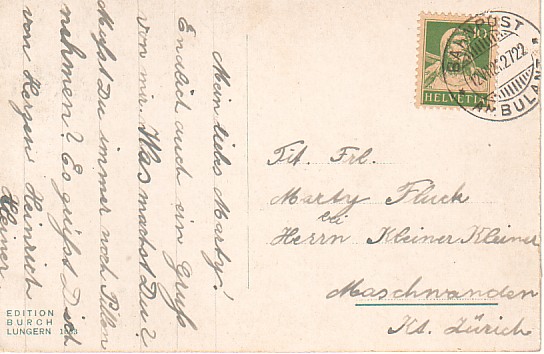 Mein liebs Marty!
Endlich auch ein Gruß
von mir. Was machst Du?
Mußt Du immer noch Pillen
nehmen? Es grüßt Dich
von Herzen Heinrich
Kleiner
HELVETIA
BAHNPOST
AMBULANT
Tit. Frl.
Marty Fluck
bei
Herrn Kleiner Kleiner
Maschwanden
Kt. Zürich
EDITION
BURCH
LUNGERN